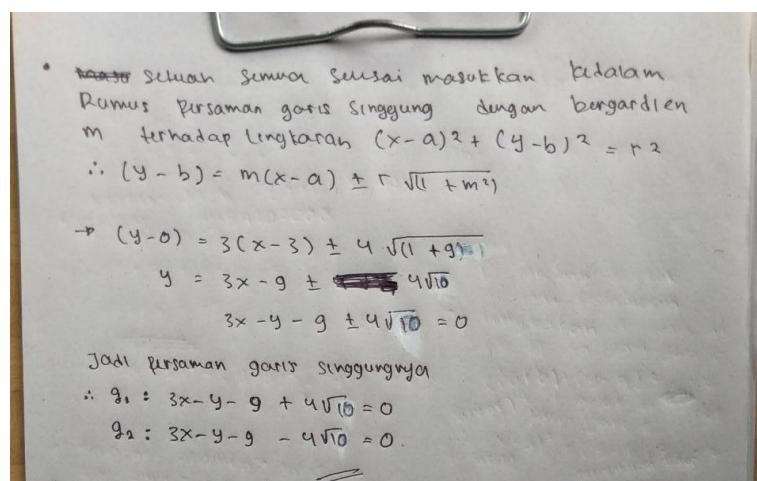 • setelah semua selesai masukkan kedalam
Rumus persaman garis singgung dengan bergardien
m terhadap lingkaran (x-a)² + (y-b)² = r²
∴ (y-b) = m(x-a) ± r √(1 + m²)
→ (y-0) = 3(x-3) ± 4 √(1 + 9)
y = 3x - 9 ± 4√10
3x - y - 9 ± 4√10 = 0
Jadi persaman garis singgungnya
∴ g₁ : 3x-y-9 + 4√10 = 0
g₂ : 3x-y-9 - 4√10 = 0.